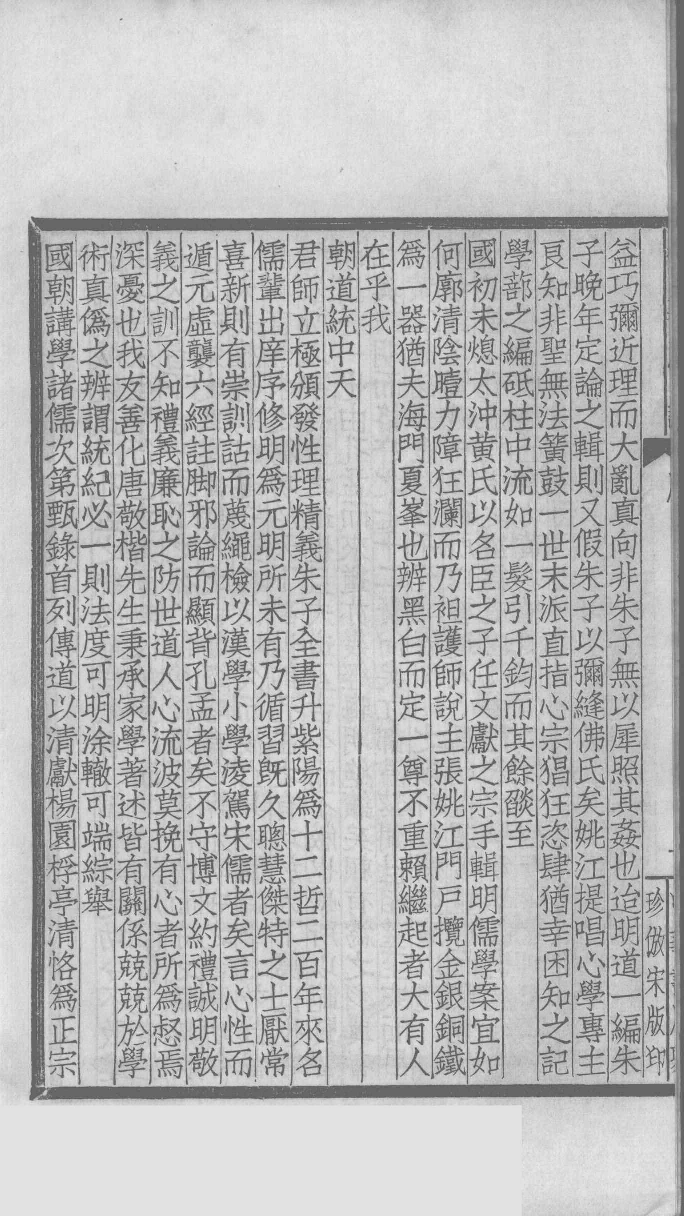 益巧彌近理而大亂真向非朱子無以犀照其姦也迨明道一編朱
子晚年定論之輯則又假朱子以彌縫佛氏矣姚江提唱心學專主
良知非聖無法簧鼓一世末派直指心宗猖狂恣肆猶幸困知之記
學蔀之編砥柱中流如一髮引千鈞而其餘燄至
國初未熄太沖黄氏以名臣之子任文獻之宗手輯明儒學案宜如
何廓清陰曀力障狂瀾而乃袒護師說主張姚江門戸攬金銀銅鐵
爲一器猶夫海門夏峯也辨黑白而定一尊不重賴繼起者大有人
在乎我
朝道統中天
君師立極頒發性理精義朱子全書升紫陽爲十二哲二百年來名
儒輩出庠序修明爲元明所未有乃循習旣久聰慧傑特之士厭常
喜新則有崇訓詁而蔑繩檢以漢學小學淩駕宋儒者矣言心性而
遁元虛襲六經註脚邪論而顯背孔孟者矣不守博文約禮誠明敬
義之訓不知禮義廉恥之防世道人心流波莫挽有心者所爲惄焉
深憂也我友善化唐敬楷先生秉承家學著述皆有關係兢兢於學
術真僞之辨謂統紀必一則法度可明涂轍可端綜舉
國朝講學諸儒次第甄錄首列傳道以清獻楊園桴亭清恪爲正宗
珍倣宋版印